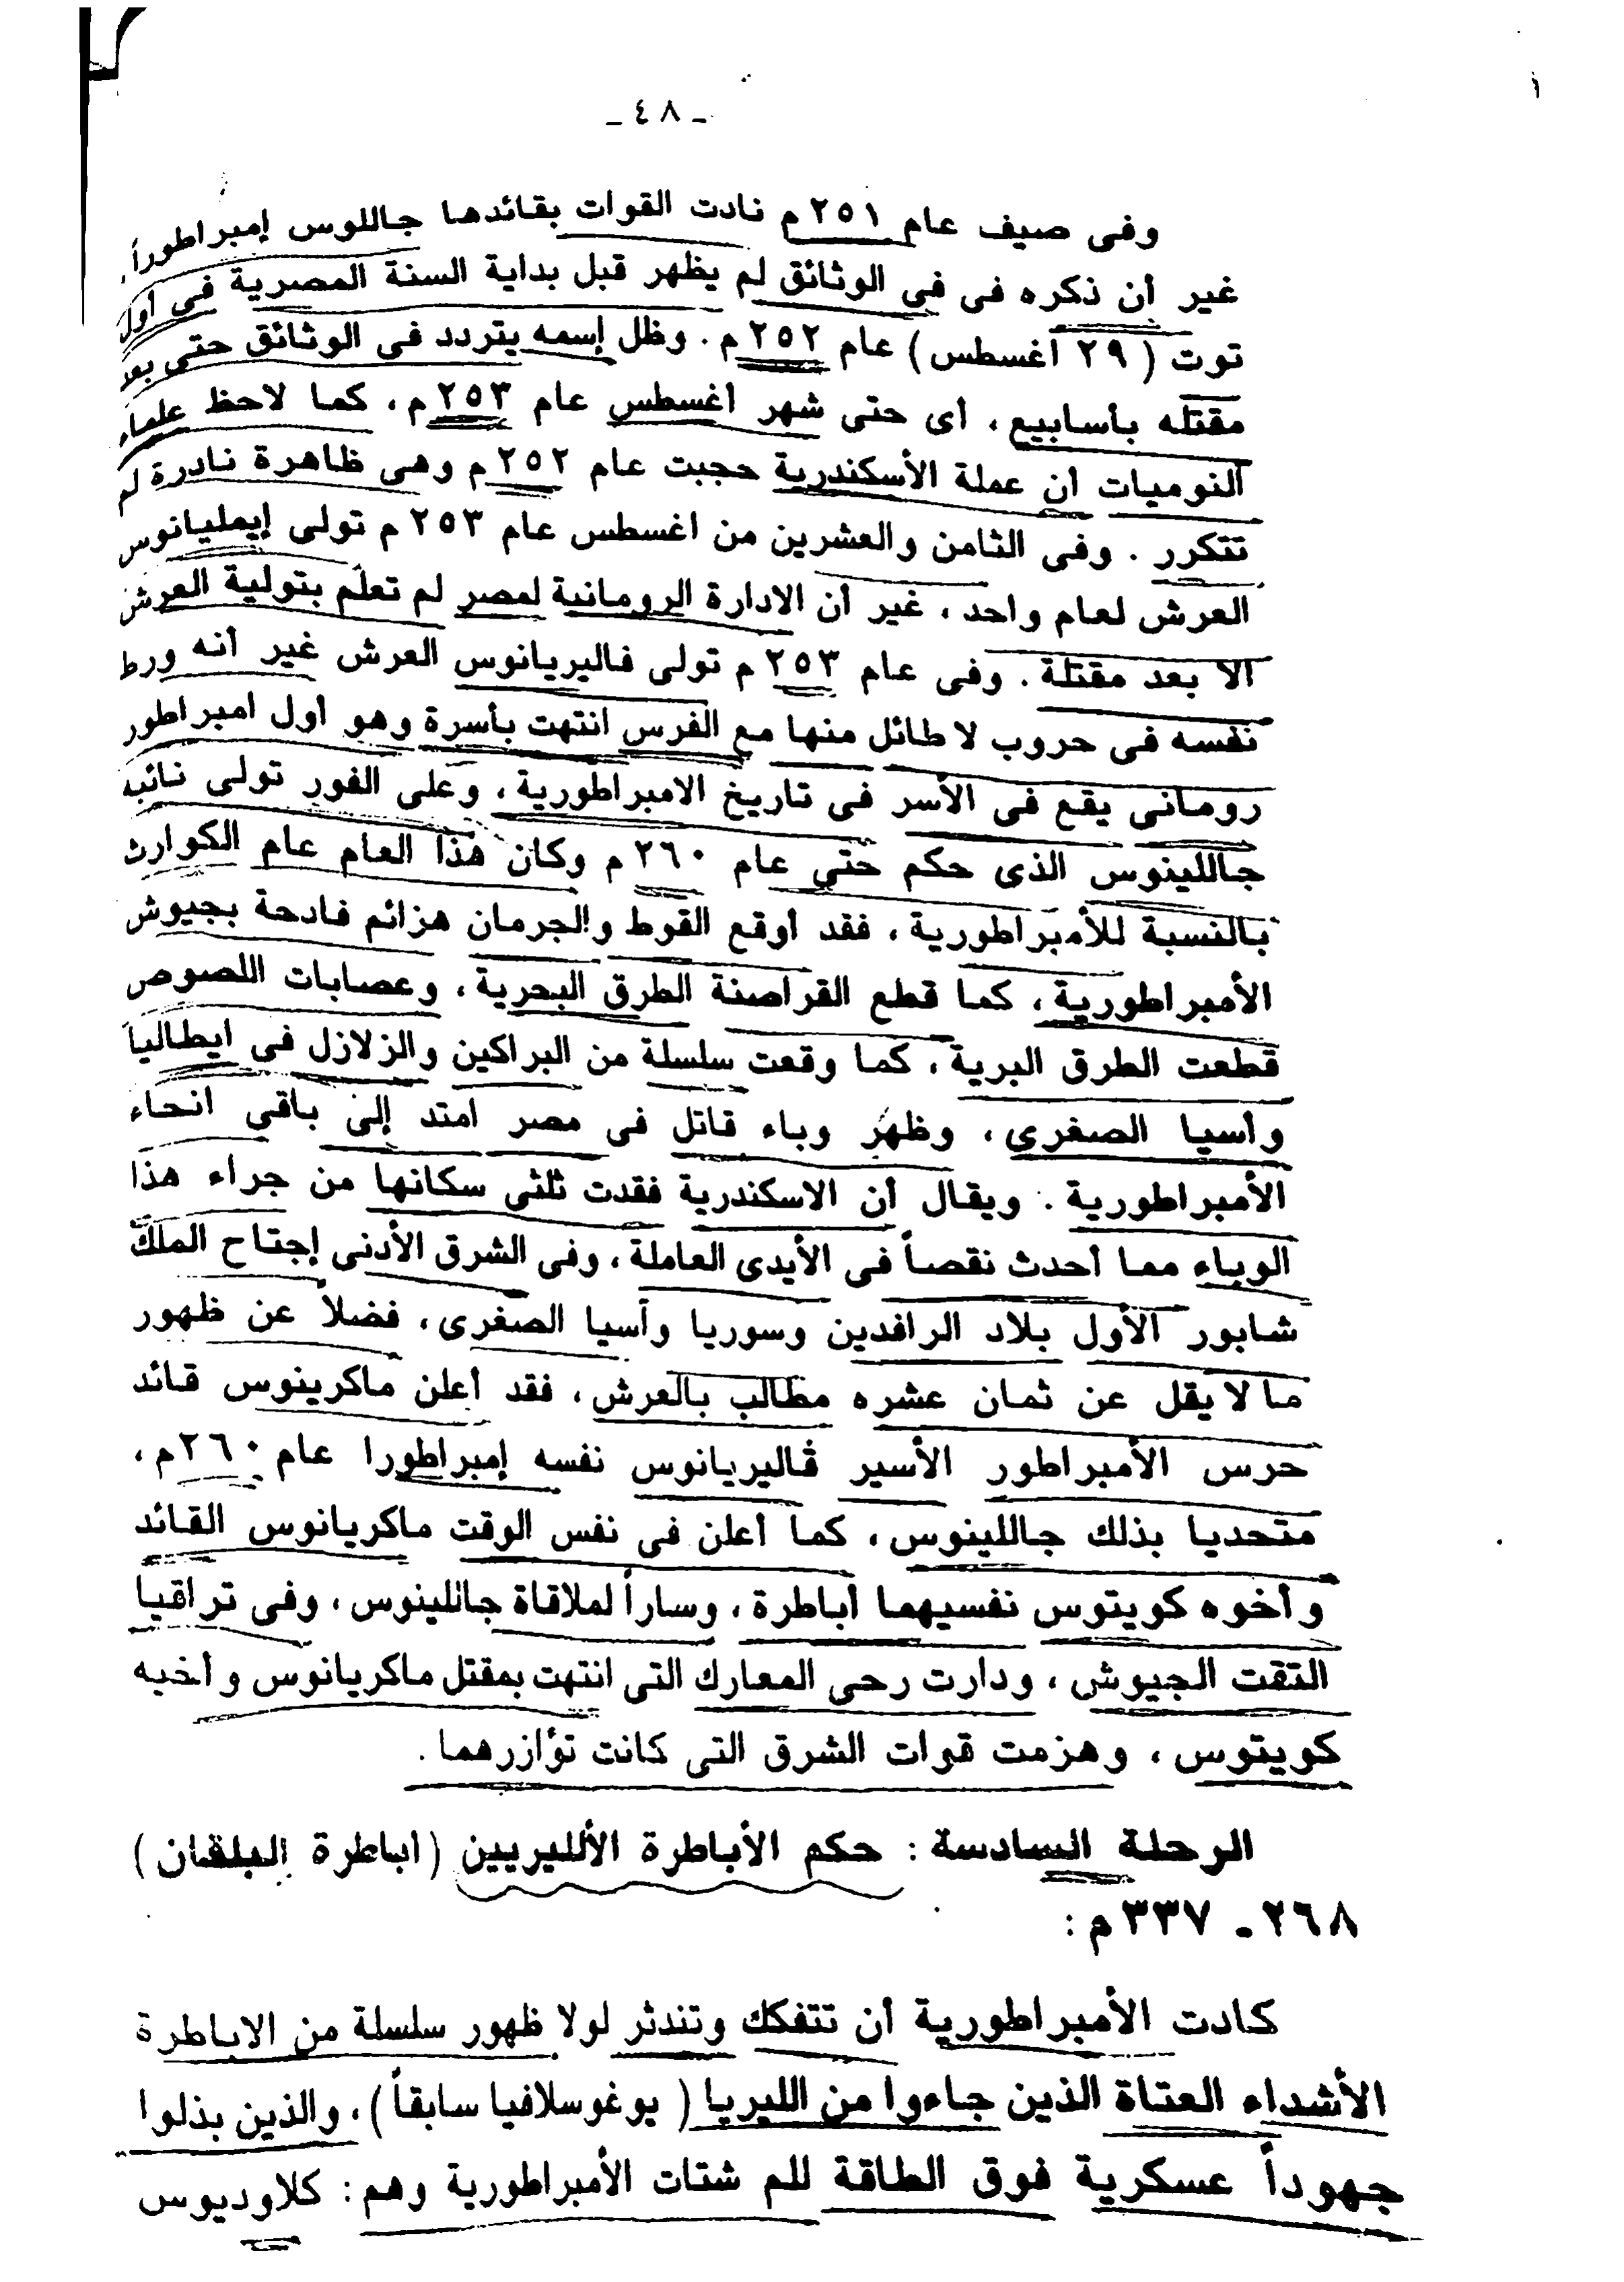 ـ ٤٨ ـ
١
وفى صيف عام ٢٥١ م نادت القوات بقائدها جاللوس إمبراطوراً
غير أن ذكره فى فى الوثائق لم يظهر قبل بداية السنة المصرية فى أول
توت ( ٢٩ أغسطس ) عام ٢٥٢ م . وظل إسمه يتردد فى الوثائق حتى بعد
مقتله بأسابيع ، أى حتى شهر أغسطس عام ٢٥٣ م ، كما لاحظ علماء
النوميات أن عملة الأسكندرية حجبت عام ٢٥٢ م وهى ظاهرة نادرة لم
تتكرر . وفى الثامن والعشرين من اغسطس عام ٢٥٣ م تولى إيمليانوس
العرش لعام واحد ، غير أن الادارة الرومانية لمصر لم تعلم بتولية العرش
الا بعد مقتلة . وفى عام ٢٥٣ م تولى فاليريانوس العرش غير أنه ورط
نفسه فى حروب لا طائل منها مع الفرس انتهت بأسرة وهو أول امبراطور
رومانى يقع فى الأسر فى تاريخ الامبراطورية ، وعلى الفور تولى نائبه
جاللينوس الذى حكم حتى عام ٢٦٠ م وكان هذا العام عام الكوارث
بالنسبة للأمبراطورية ، فقد أوقع القوط والجرمان هزائم فادحة بجيوش
الأمبراطورية ، كما قطع القراصنة الطرق البحرية ، وعصابات اللصوص
قطعت الطرق البرية ، كما وقعت سلسلة من البراكين والزلازل فى ايطاليا
وأسيا الصغرى ، وظهر وباء قاتل فى مصر امتد إلى باقى انحاء
الأمبراطورية . ويقال أن الاسكندرية فقدت ثلثى سكانها من جراء هذا
الوباء مما أحدث نقصاً فى الأيدى العاملة ، وفى الشرق الأدنى إجتاح الملك
شابور الأول بلاد الرافدين وسوريا وأسيا الصغرى ، فضلاً عن ظهور
ما لا يقل عن ثمان عشره مطالب بالعرش ، فقد أعلن ماكرينوس قائد
حرس الأمبراطور الأسير ڤاليريانوس نفسه إمبراطورا عام ٢٦٠م ،
متحديا بذلك جاللينوس ، كما أعلن فى نفس الوقت ماكريانوس القائد
وأخوه كويتوس نفسيهما أباطرة ، وساراً لملاقاة جاللينوس ، وفى تراقيا
التقت الجيوش ، ودارت رحى المعارك التى انتهت بمقتل ماكريانوس وأخيه
كويتوس ، وهزمت قوات الشرق التى كانت تؤازرهما .
الرحلة السادسة : حكم الأباطرة الألليريين ( أباطرة البلقان )
٢٦٨ ـ ٣٣٧ م :
كادت الأمبراطورية أن تتفكك وتندثر لولا ظهور سلسلة من الاباطرة
الأشداء العتاة الذين جاءوا من الليريا ( يوغوسلافيا سابقاً ) ، والذين بذلوا
جهوداً عسكرية فوق الطاقة للم شتات الأمبراطورية وهم : كلاوديوس